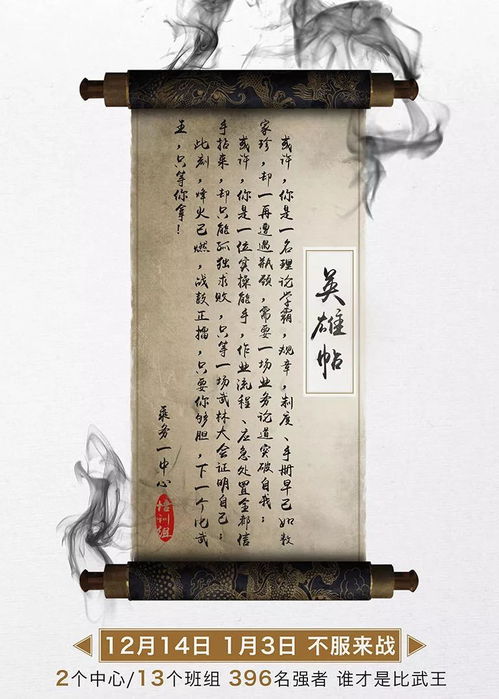 英雄帖
或许,你是一名理论学霸,规章,制度、手册早已如数
家珍,却一再遭遇瓶颈,需要一场业务论道突破自我;
或许,你是一位实操能手,作业流程、应急处置全都信
手拈来,却只能孤独求败,只等一场武林大会证明自己;
此刻,烽火已燃,战鼓正擂,只要你够胆,下一个比武
王,只等你拿!
乘务一中心
培训组
12月14日 1月3日 不服来战
2个中心/13个班组 396名强者 谁才是比武王